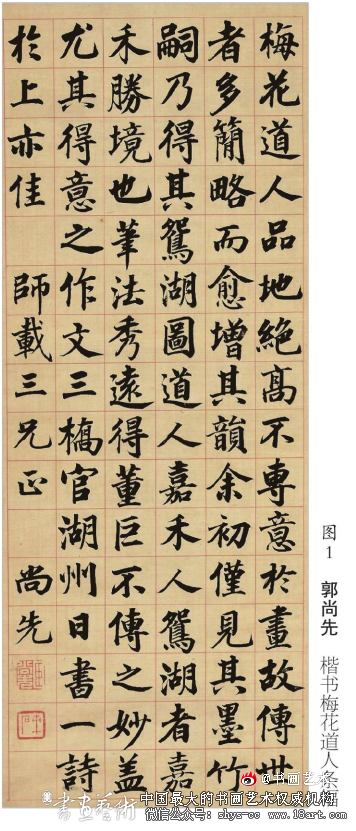 梅花道人品地絶髙不專意於畫故傳世
者多簡略而愈增其韻余初僅見其墨竹
嗣乃得其鴛湖圖道人嘉禾人鴛湖者嘉
禾勝境也筆法秀遠得董巨不傳之妙盖
尤其得意之作文三橋官湖州日書一詩
於上亦佳 師載三兄正 尚先
图1 郭尚先 楷书梅花道人条幅
@书画艺术
書畫藝術
中国最大的书画艺术权威机构
微信公众号:shys-cc www.18art.com